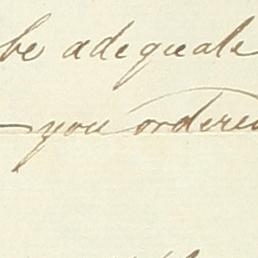 be adequate
you ordered